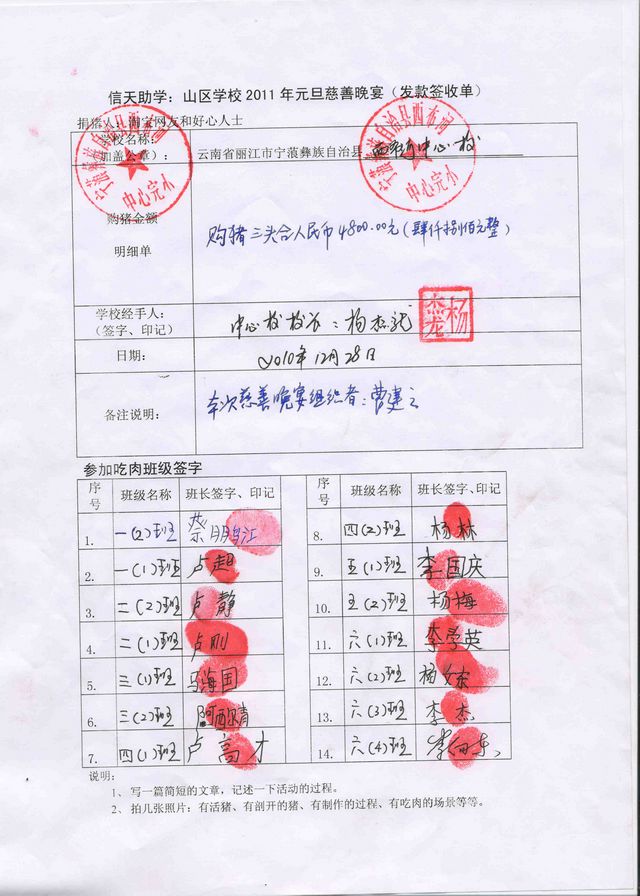 信天助学：山区学校 2011 年元旦慈善晚宴（发款签收单）
捐猪人：淘宝网友和好心人士
学校名称:
（加盖公章）:
云南省丽江市宁蒗彝族自治县 西布河中心校
宁蒗彝族自治县西布河
中心完小
宁蒗彝族自治县西布河
中心完小
购猪金额
明细单
购猪三头合人民币4800.00元(肆仟捌佰元整)
学校经手人：
（签字、印记）
中心校校长：杨杰龙
日期：
2010年12月28日
备注说明：
本次慈善晚宴组织者：曹建云
参加吃肉班级签字
序号 班级名称 班长签字、印记
1. 一(2)班 蔡鹏江
2. 一(1)班 卢超
3. 二(2)班 卢静
4. 二(1)班 卢刚
5. 三(1)班 马海国
6. 三(2)班
7. 四(1)班 卢高才
序号 班级名称 班长签字、印记
8. 四(2)班 杨林
9. 五(1)班 李国庆
10. 五(2)班 杨梅
11. 六(1)班 李学英
12. 六(2)班
13. 六(3)班 李杰
14. 六(4)班
说明：
1、 写一篇简短的文章，记述一下活动的过程。
2、 拍几张照片：有活猪、有剖开的猪、有制作的过程、有吃肉的场景等等。